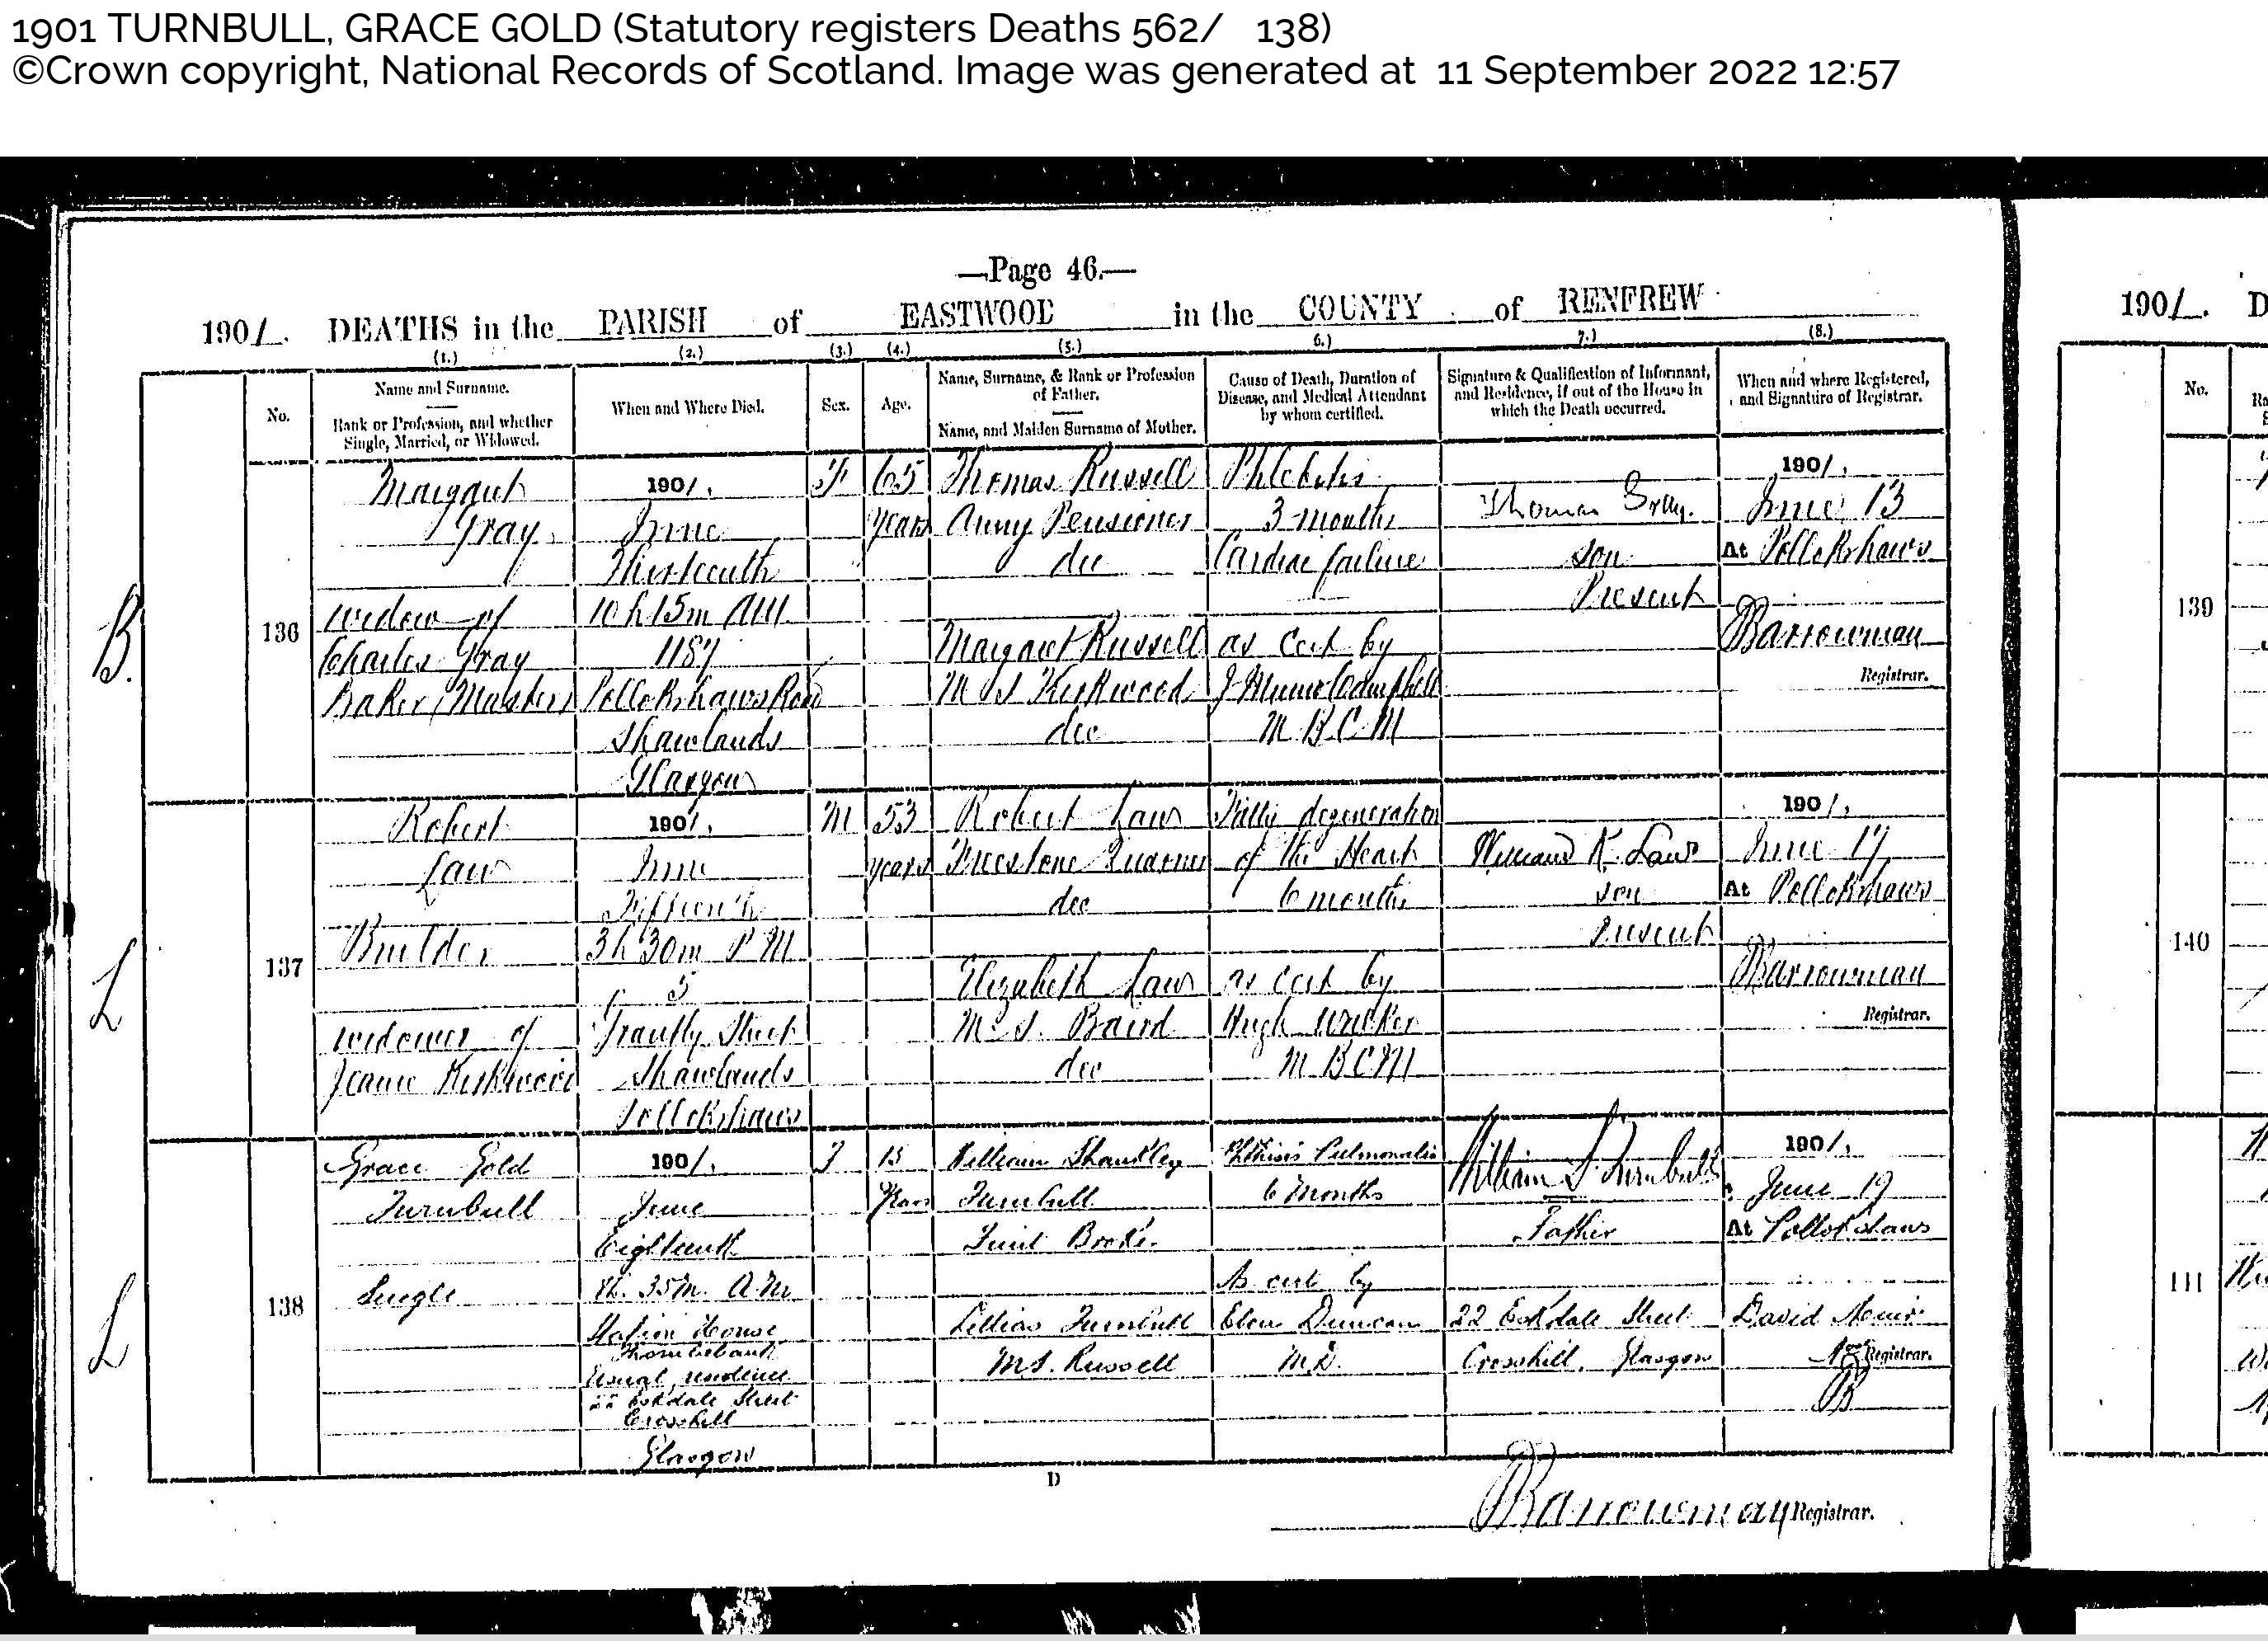 1901 TURNBULL, GRACE GOLD (Statutory registers Deaths 562/ 138)
©Crown copyright, National Records of Scotland. Image was generated at 11 September 2022 12:57
—Page 46.—
1901. DEATHS in the PARISH of EASTWOOD in the COUNTY of RENFREW
(1.) (2.) (3.) (4.) (5.) 6.) 7.) (8.)
No.
Name and Surname.
Rank or Profession, and whether
Single, Married, or Widowed.
When and Where Died.
Sex.
Age.
Name, Surname, & Rank or Profession
of Father.
Name, and Maiden Surname of Mother.
Cause of Death, Duration of
Disease, and Medical Attendant
by whom certified.
Signature & Qualification of Informant,
and Residence, if out of the House in
which the Death occurred.
When and where Registered,
and Signature of Registrar.
B.
136
Margaret
Gray
widow of
Charles Gray
Baker (Master)
1901.
June
Thirteenth
10 h 15m AM
1187
Pollokshaws Road
Shawlands
Glasgow
F
65
years
Thomas Russell
Army Pensioner
dec
Margaret Russell
M S Kirkwood
dec
Phlebitis
3 months
Cardiac failure
as cert by
J Munro Campbell
M B C M
Thomas Gray.
son
Present
1901.
June 13
At Pollokshaws
Barrowman
Registrar.
L
137
Robert
Law
Builder
widower of
Jeanie Kirkwood
1901.
June
Fifteenth
3h 30m P M
5
Grantly Street
Shawlands
Pollokshaws
M
53
years
Robert Law
Freestone Quarrier
dec
Elizabeth Law
M. S. Baird
dec
Fatty degeneration
of the Heart
6 months
as cert by
Hugh
M B C M
William K. Law
son
present
1901.
June 17
At Pollokshaws
Barrowman
Registrar.
L
138
Grace Gold
Turnbull
Single
1901.
June
Eighteenth
35m. A.M.
Station House
Thornliebank
Usual residence
22 Eskdale Street
Crosshill
Glasgow
F
Years
William
Turnbull
Broker
Lillias Turnbull
M.S. Russell
Phthisis Pulmonalis
6 Months
As cert by
Duncan
M.D.
William S Turnbull
Father
22 Eskdale Street
Crosshill, Glasgow
1901.
June 19
At Pollokshaws
David Muir
Registrar.
B
D
Barrowman Registrar.
1901. D
No.
139
140